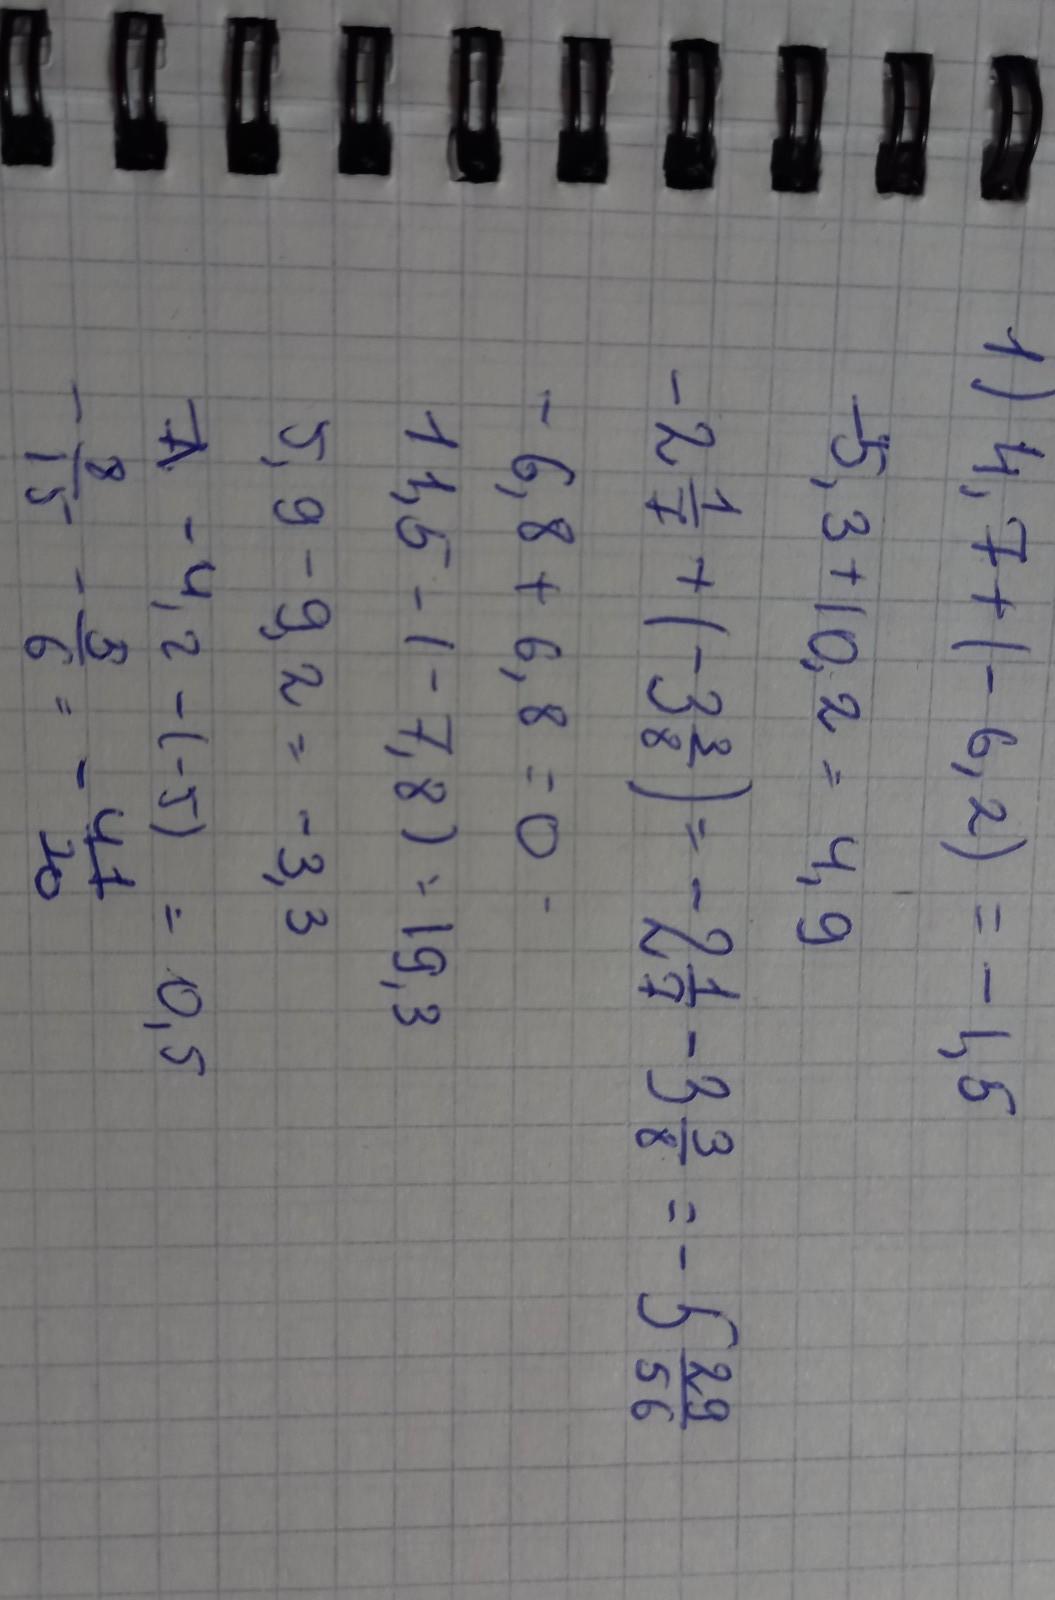 1) 4,7+(-6,2) = -1,5
-5,3+10,2 = 4,9
-2 1/7 + (-3 3/8) = -2 1/7 - 3 3/8 = -5 29/56
-6,8 + 6,8 = 0
11,5 - (-7,8) = 19,3
5,9 - 9,2 = -3,3
-4,2 - (-5) = 0,5
-8/15 - 5/6 = - 41/30